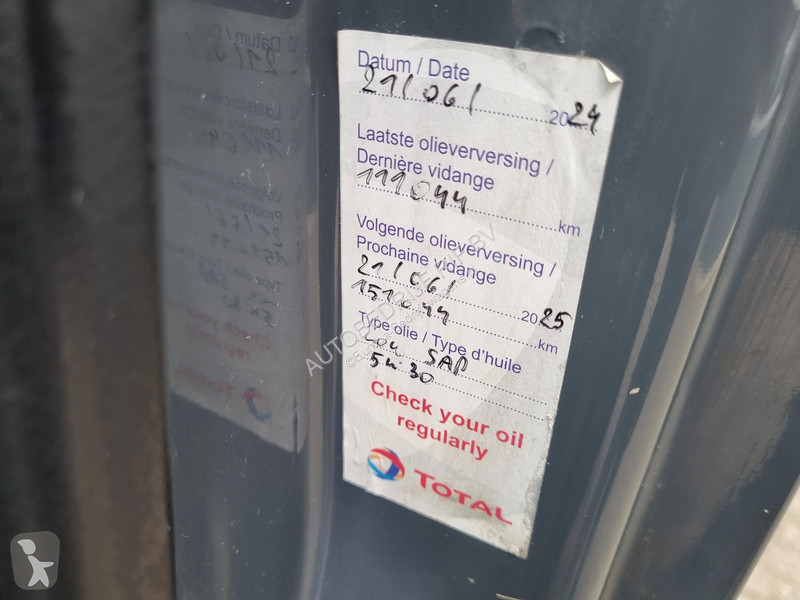 Datum / Date
21/06/ 2024
Laatste olieverversing /
Dernière vidange
111044 km
Volgende olieverversing /
Prochaine vidange
21/06/ 2025
151044 km
Type olie / Type d'huile
low SAP
5w30
Check your oil
regularly
TOTAL